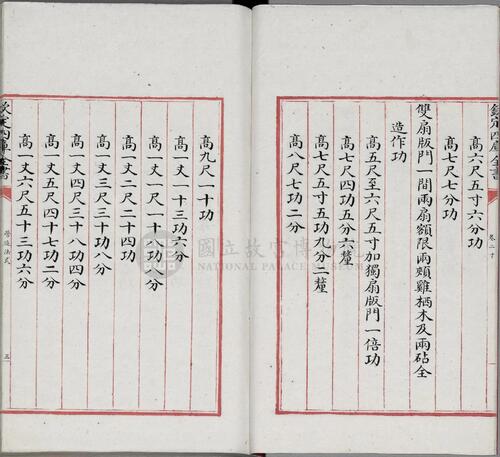 欽定四庫全書
卷二十
高六尺五寸六分功
高七尺七分功
雙扇版門一間兩扇額限兩頰雞栖木及兩砧全
造作功
高五尺至六尺五寸加獨扇版門一倍功
高七尺四功五分六釐
高七尺五寸五功九分二釐
高八尺七功二分
高九尺一十功
高一丈一十三功六分
高一丈一尺一十八功八分
高一丈二尺二十四功
高一丈三尺三十功八分
高一丈四尺三十八功四分
高一丈五尺四十七功二分
高一丈六尺五十三功六分
欽定四庫全書
營造法式
五
國立故宮博物院
NATIONAL PALACE MUSEUM